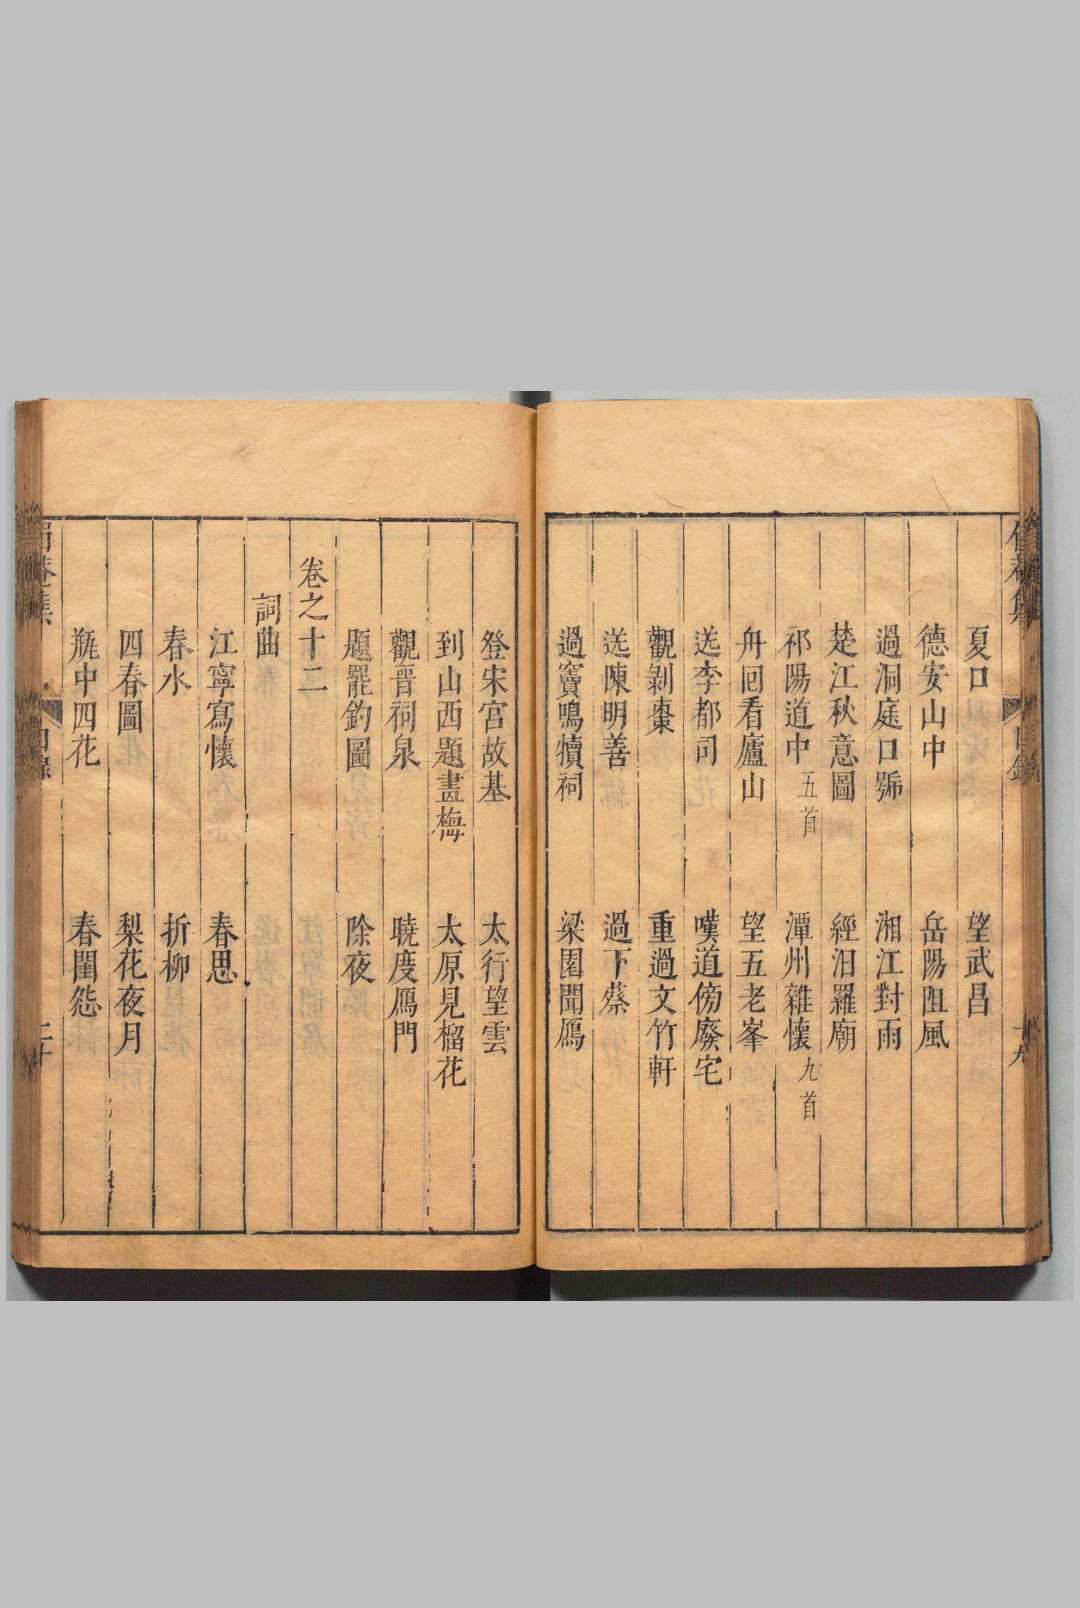 夏口 望武昌
德安山中 岳陽阻風
過洞庭口號 湘江對雨
楚江秋意圖 經汨羅廟
祁陽道中五首 潭州雜懷九首
舟囘看廬山 望五老峯
送李都司 嘆道傍廢宅
觀剝棗 重過文竹軒
送陳明善 過下蔡
過竇鳴犢祠 梁園聞鴈
登宋宫故基 太行望雲
到山西題畫梅 太原見榴花
觀晋祠泉 曉度鴈門
題罷釣圖 除夜
卷之十二
詞曲
江寧寫懷 春思
春水 折柳
四春圖 梨花夜月
瓶中四花 春閨怨
目錄